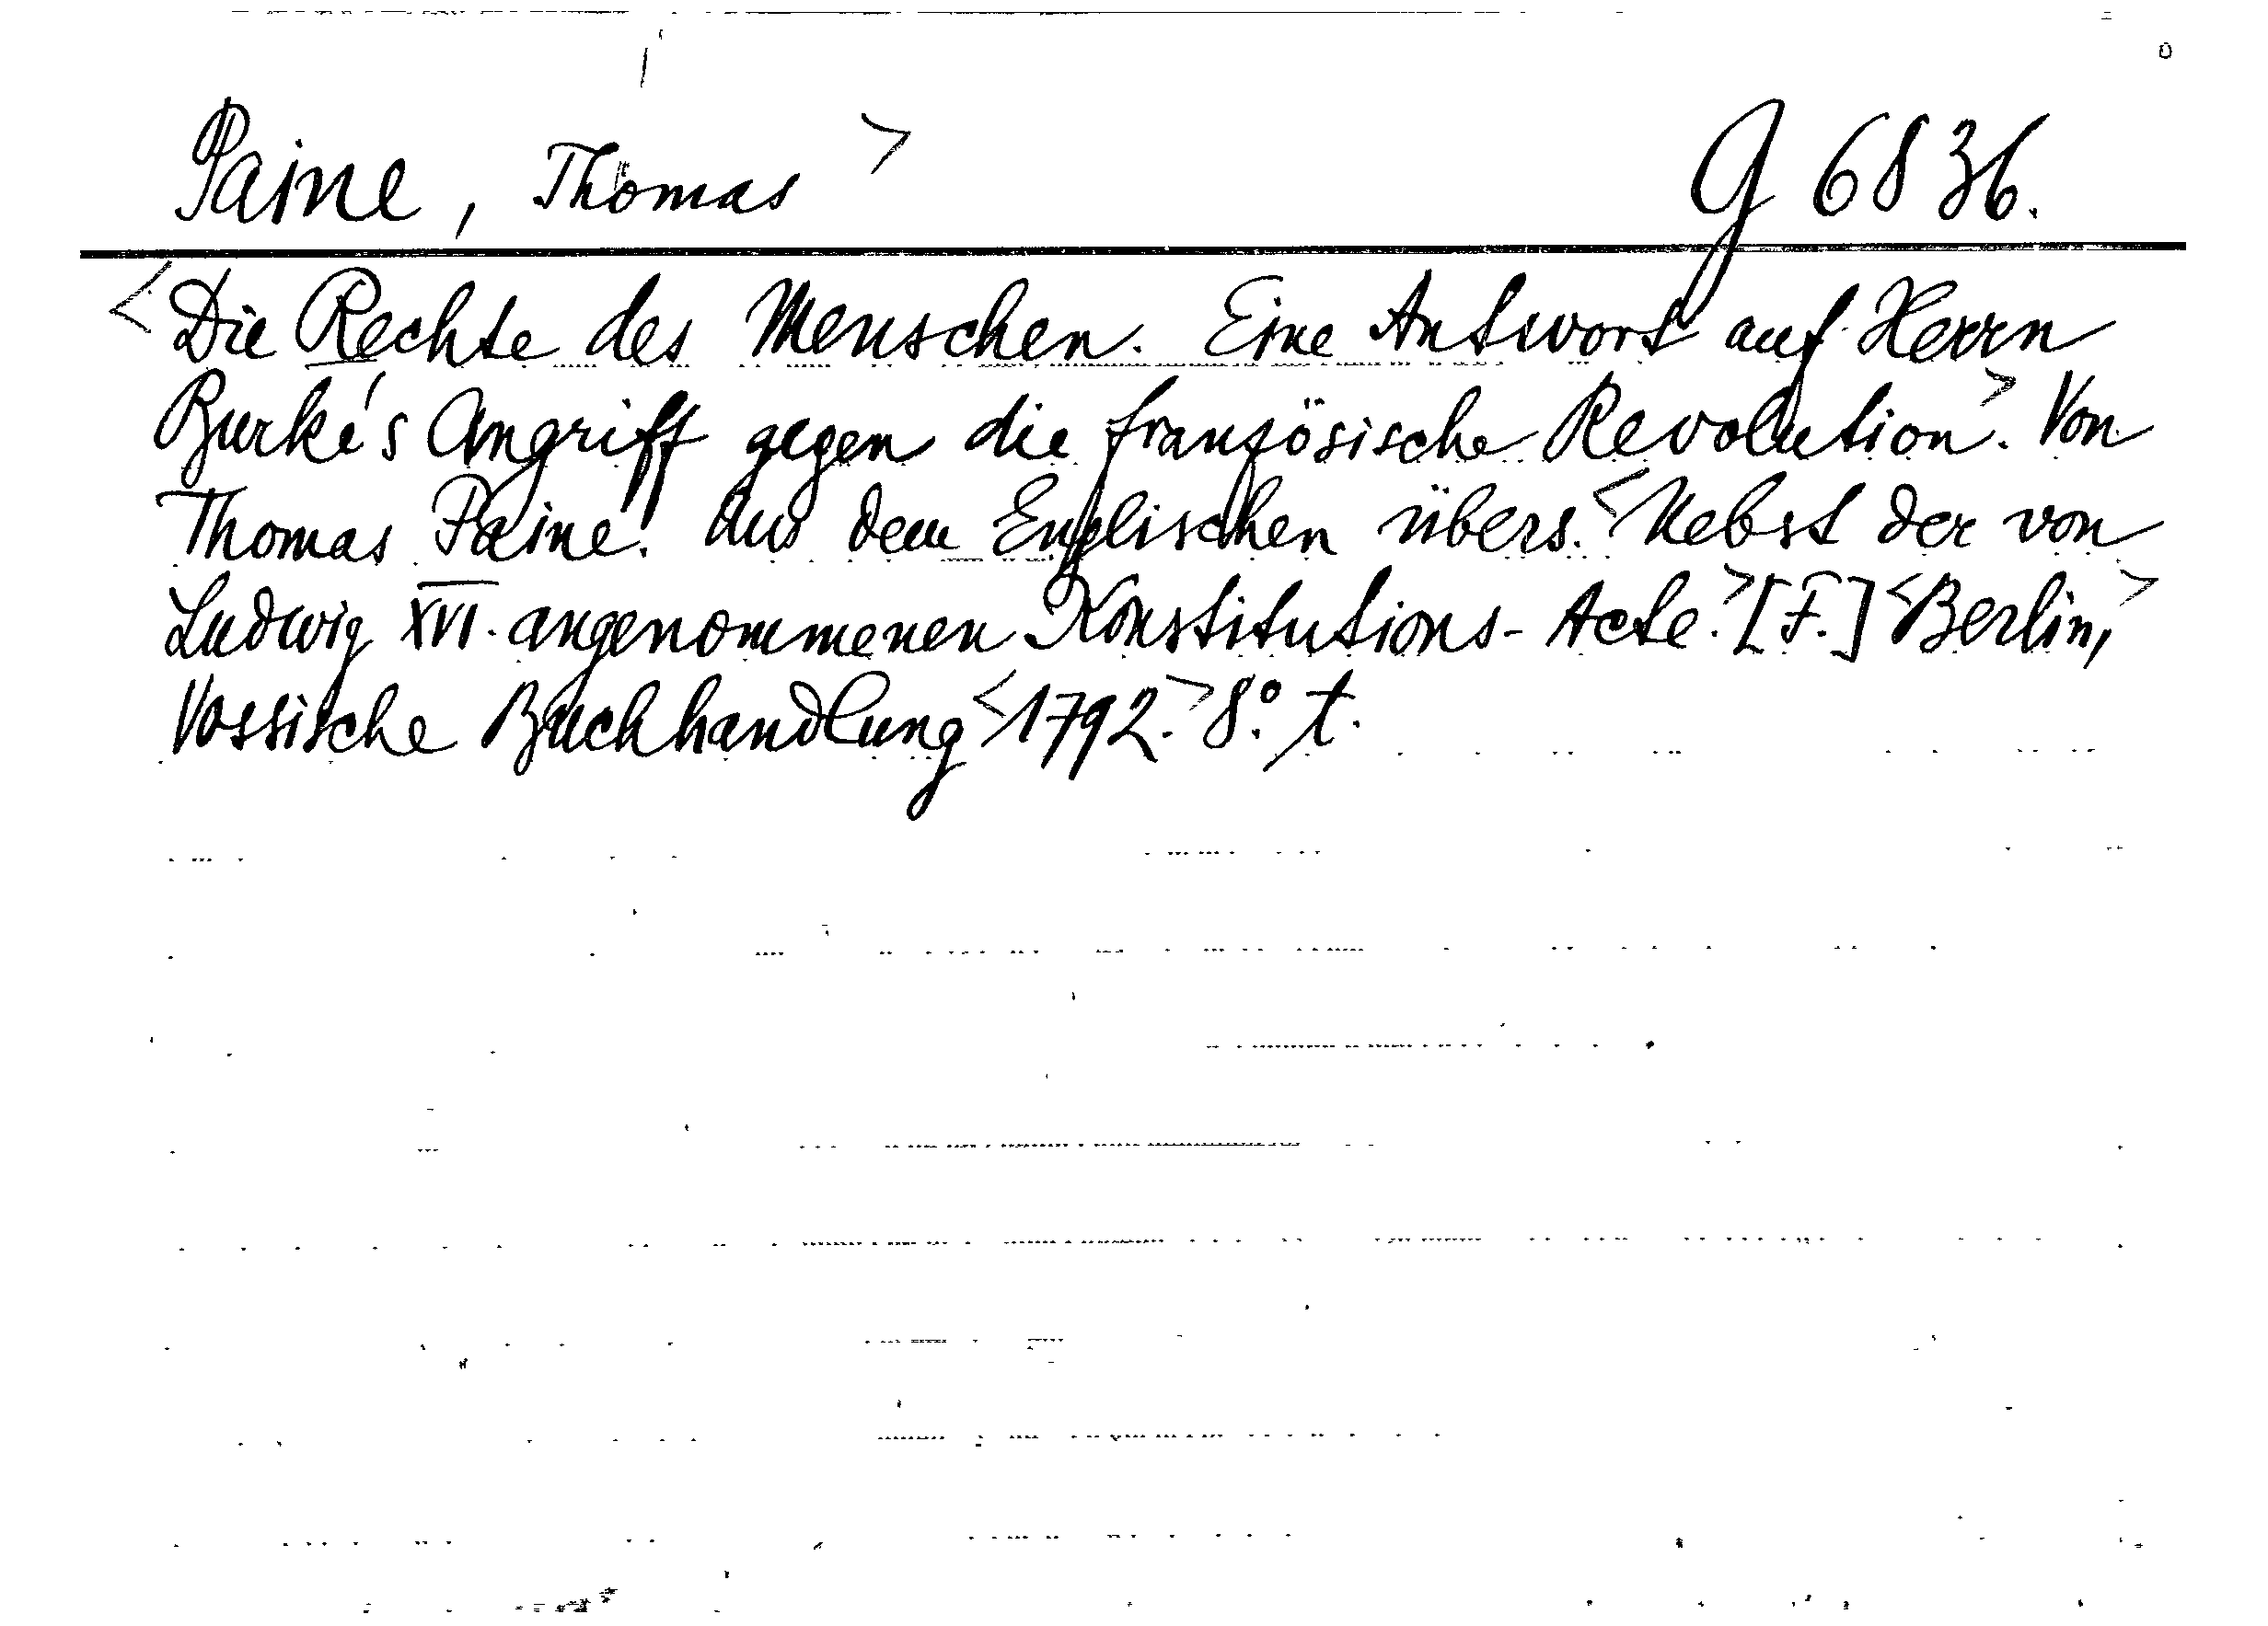 Paine, Thomas > G 6836.
<Die Rechte des Menschen. Eine Antwort auf Herrn
Burke's Angriff gegen die französische Revolution.> Von
Thomas Paine. Aus dem Englischen übers. <Nebst der von
Ludwig XVI. angenommenen Konstitutions-Acte.> [F.] <Berlin,>
Vossische Buchhandlung <1792.> 8° t.